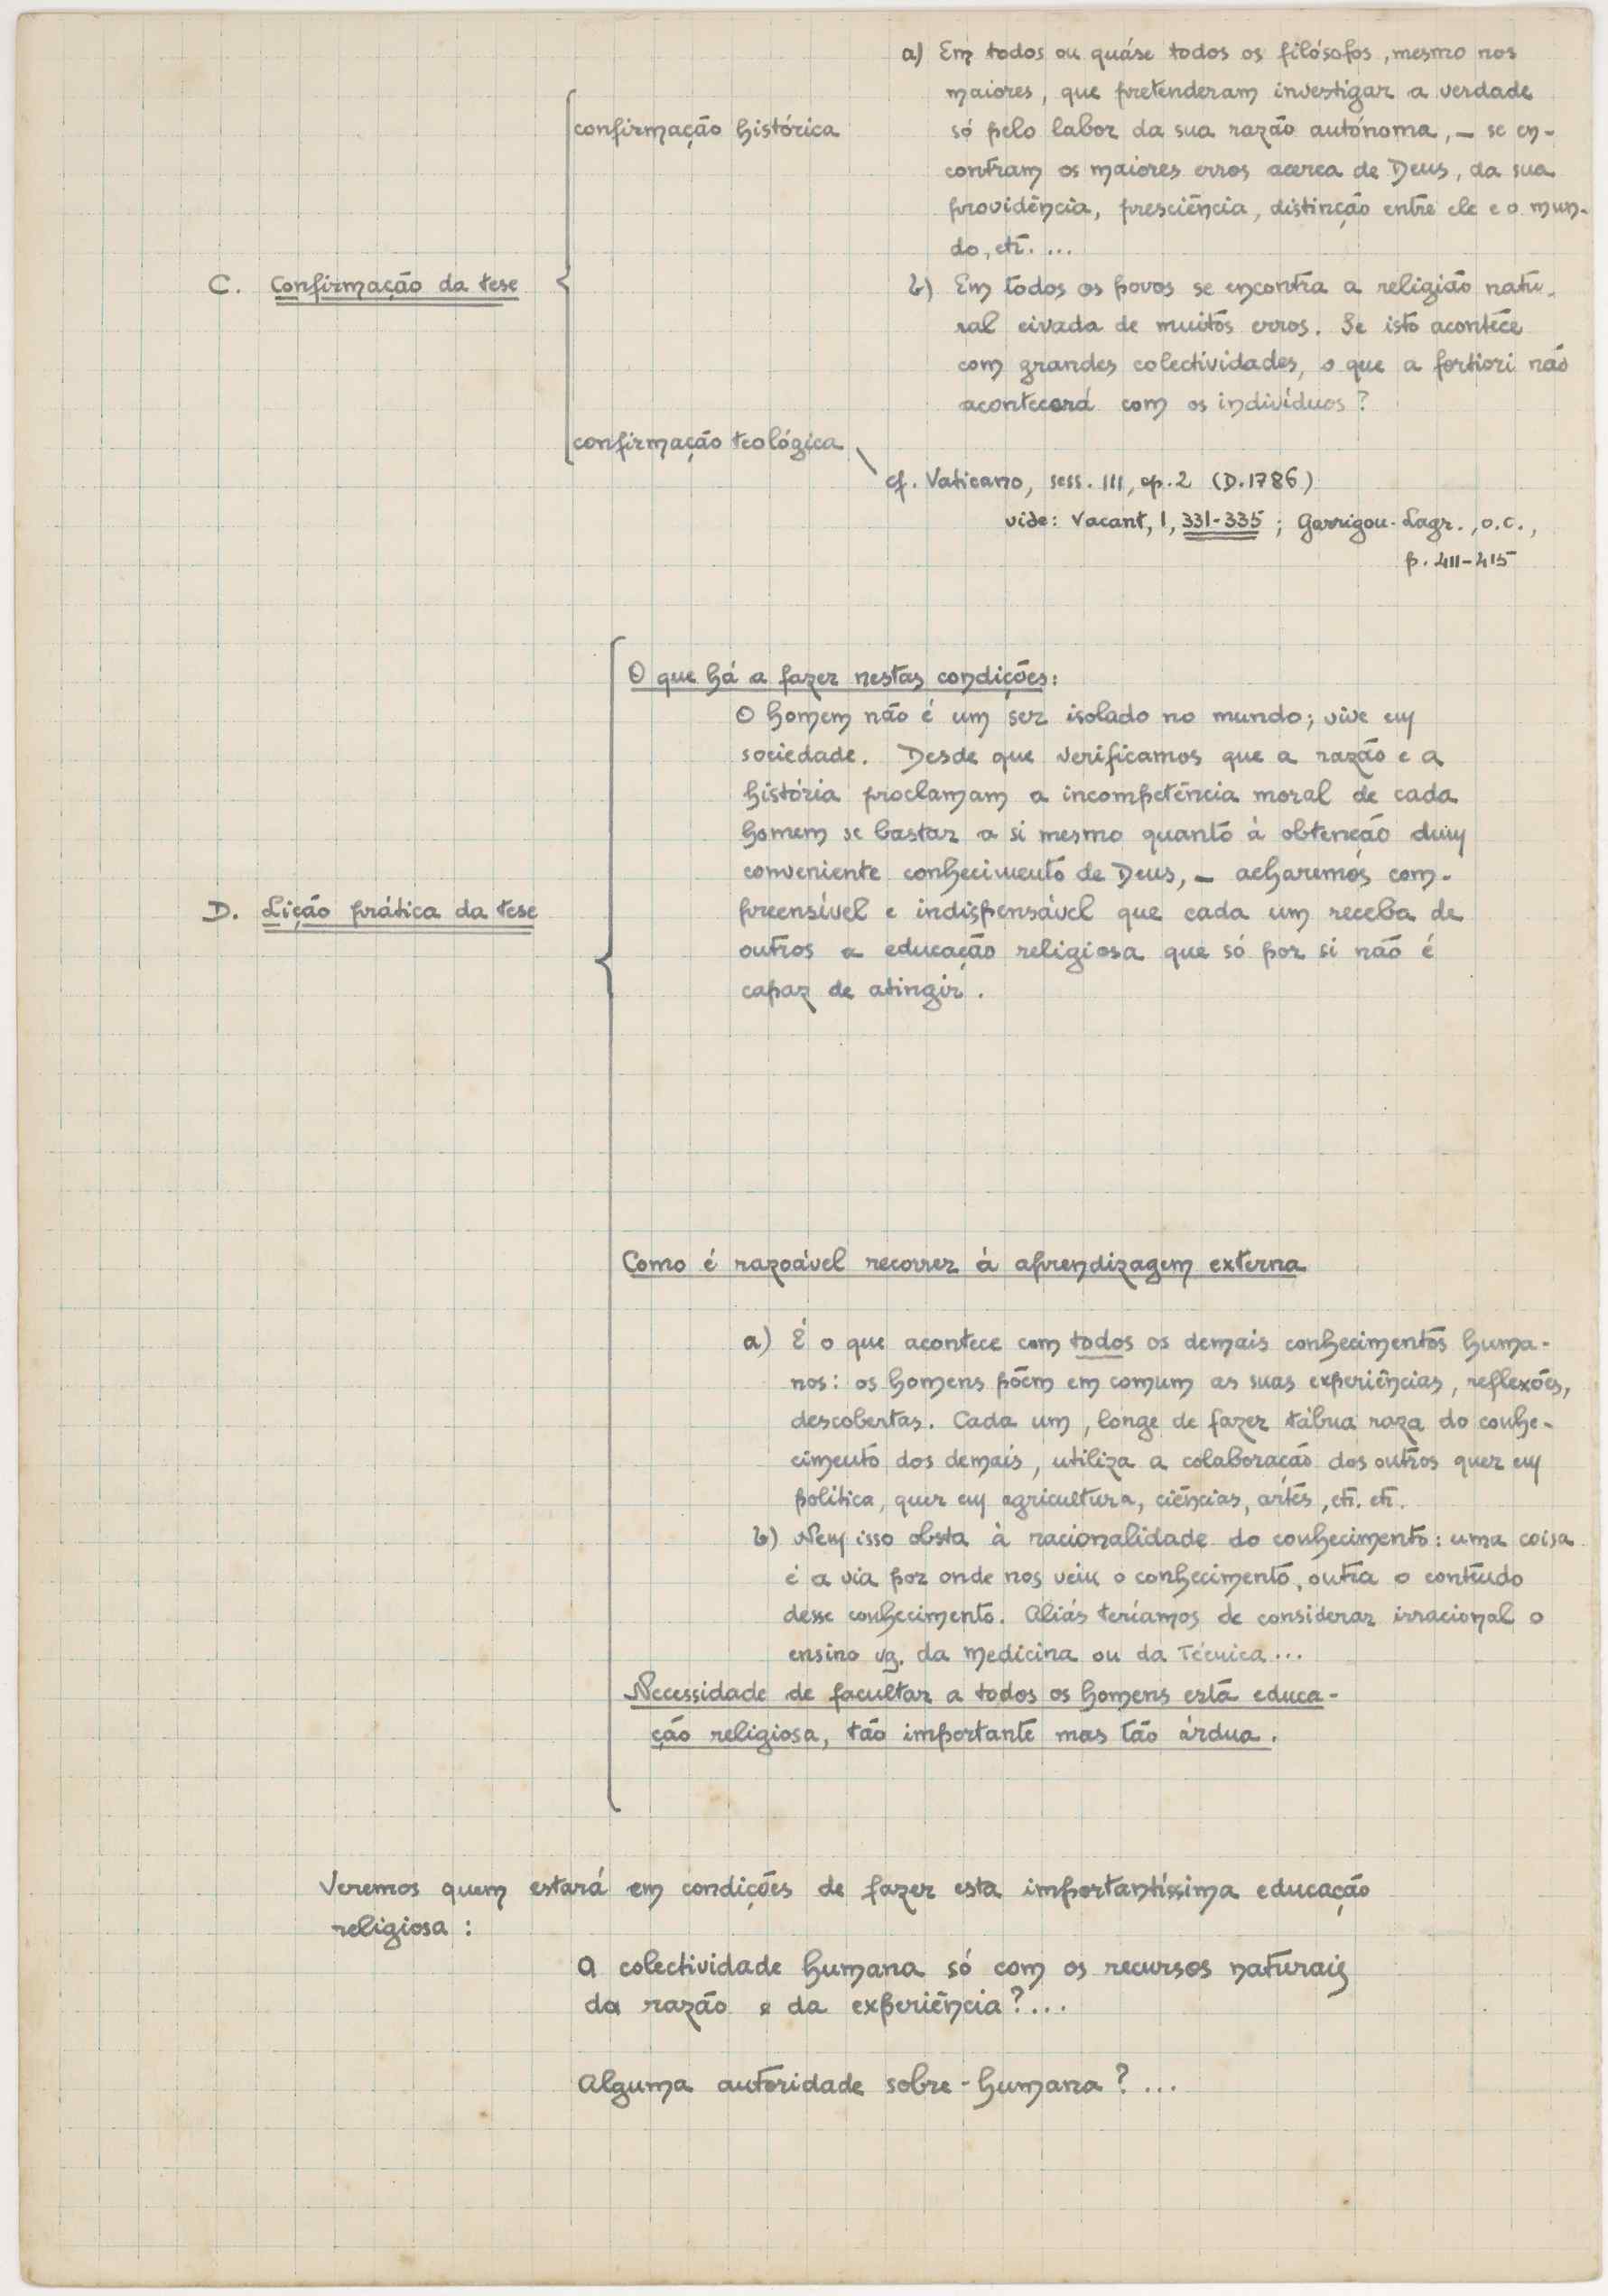 C. Confirmação da tese
confirmação histórica
a) Em todos ou quáse todos os filósofos, mesmo nos
maiores, que pretenderam investigar a verdade
só pelo labor da sua razão autónoma, – se en-
contram os maiores erros acerca de Deus, da sua
providência, presciência, distinção entre ele e o mun-
do, etc. ...
b) Em todos os povos se encontra a religião natu-
ral eivada de muitos erros. Se isto acontece
com grandes colectividades, o que a fortiori não
acontecerá com os indivíduos?
confirmação teológica
cf. Vaticano, sess. III, cp. 2 (D. 1786)
vide: Vacant, I, 331-335 ; Garrigou-Lagr., o.c.,
p. 411-415
D. Lição prática da tese
O que há a fazer nestas condições:
O homem não é um ser isolado no mundo; vive em
sociedade. Desde que verificamos que a razão e a
história proclamam a incompetência moral de cada
homem se bastar a si mesmo quanto à obtenção dum
conveniente conhecimento de Deus, – acharemos com-
preensível e indispensável que cada um receba de
outros a educação religiosa que só por si não é
capaz de atingir.
Como é razoável recorrer à aprendizagem externa
a) É o que acontece com todos os demais conhecimentos huma-
nos: os homens põem em comum as suas experiências, reflexões,
descobertas. Cada um, longe de fazer tábua raza do conhe-
cimento dos demais, utiliza a colaboração dos outros quer em
política, quer em agricultura, ciências, artes, etc. etc.
b) Nem isso obsta à racionalidade do conhecimento: uma coisa
é a via por onde nos veiu o conhecimento, outra o conteúdo
desse conhecimento. Aliás teríamos de considerar irracional o
ensino vg. da Medicina ou da Técnica...
Necessidade de facultar a todos os homens esta educa-
ção religiosa, tão importante mas tão árdua.
Veremos quem estará em condições de fazer esta importantíssima educação
religiosa :
A colectividade humana só com os recursos naturais
da razão e da experiência?...
Alguma autoridade sobre-humana? ...